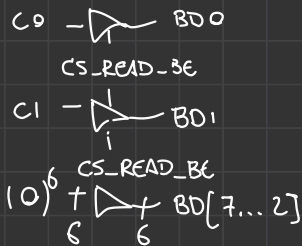 C0 BD0
CS_READ_BE
C1 BD1
CS_READ_BE
(0)⁶ 6 6 BD[7...2]